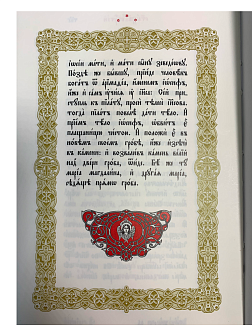 іѡсіи мт҃и, и҆ мт҃и сы́нꙋ зеведе́ѡвꙋ.
По́здѣ же бы́вшꙋ, прїи́де человѣ́къ
бога́тъ ѿ а҆рїмаѳе́а, и҆́менемъ і҆ѡ́сифъ,
и҆́же и҆ са́мъ ᲂу҆чи́сѧ ᲂу҆ і҆и҃са: Се́й при-
стꙋ́пль къ пїла́тꙋ, просѝ тѣлесѐ і҆и҃сова.
тогда̀ пїла́тъ повелѣ̀ да́ти тѣ́ло. И҆
прїе́мъ тѣ́ло і҆ѡ́сифъ, ѡ҆бви́тъ є҆̀
плащани́цею чи́стою. И҆ положѝ є҆̀ въ
но́вѣмъ свое́мъ гро́бѣ, и҆́же и҆зсѣчѐ
въ ка́мени: и҆ возвали́въ ка́мень ве́лїй
над̾ двє́ри гро́ба, ѿи́де. Бѣ́ же тꙋ̀
марі́а магдали́на, и҆ дрꙋга́ѧ марі́а,
сѣдѧ́щѣ прѧ́мѡ гро́ба.